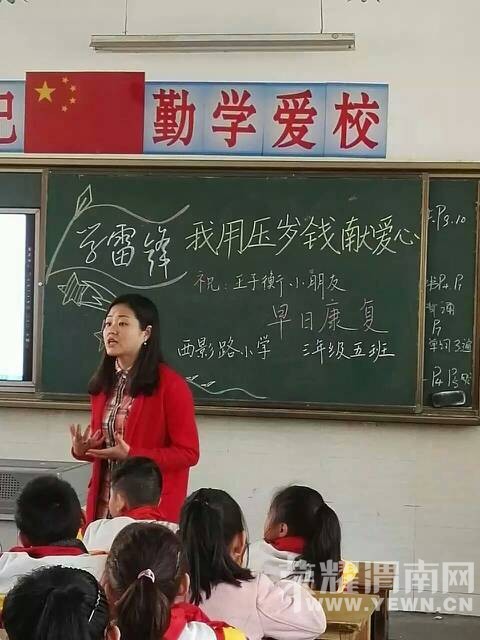 己
勤学爱校
学雷锋
我用压岁钱献爱心
祝：王子衡小朋友
早日康复
西影路小学 三年级五班
P3.10
背诵
单词3遍
荣耀渭南网
WWW.YEWN.CN